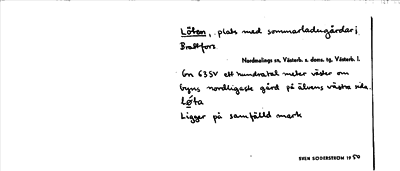 Löten, plats med sommarladugårdar i
Brattfors
Nordmalings sn, Västerb. s. doms. tg, Västerb. l.
Gn 63SV ett hundratal meter väster om
byns nordligaste gård på älvens västra sida.
Løta
Ligger på samfälld mark
SVEN SÖDERSTRÖM 1950